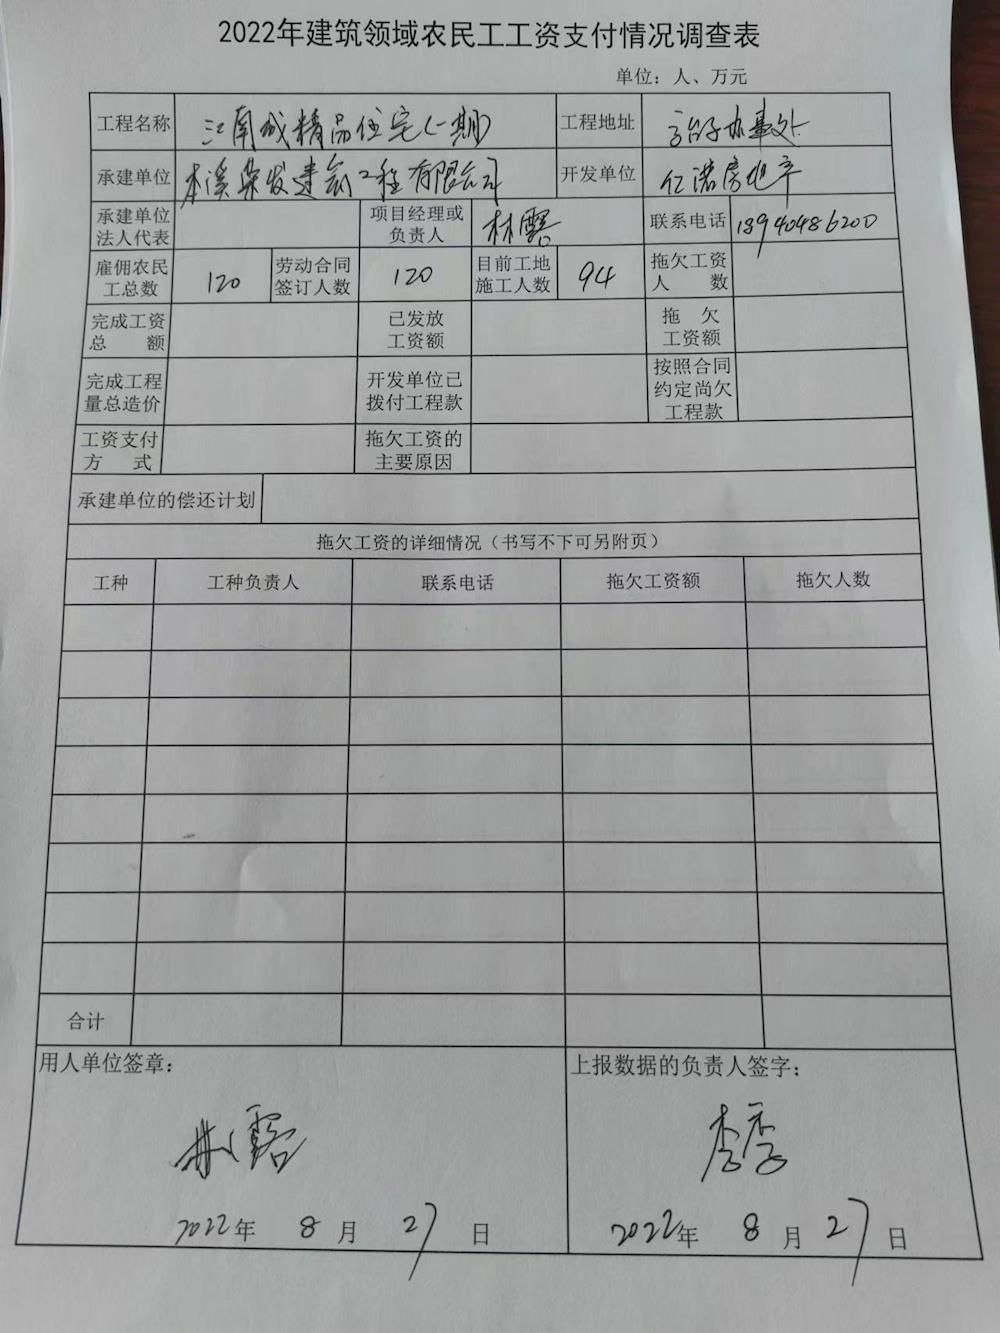 2022年建筑领域农民工工资支付情况调查表
单位：人、万元
工程名称 江南城精品住宅(一期) 工程地址 办事处
承建单位 本溪荣发建筑工程有限公司 开发单位 亿诺房地产
承建单位法人代表 项目经理或负责人 林露 联系电话 18940486200
雇佣农民工总数 120 劳动合同签订人数 120 目前工地施工人数 94 拖欠工资人数
完成工资总额 已发放工资额 拖欠工资额
完成工程量总造价 开发单位已拨付工程款 按照合同约定尚欠工程款
工资支付方式 拖欠工资的主要原因
承建单位的偿还计划
拖欠工资的详细情况（书写不下可另附页）
工种 工种负责人 联系电话 拖欠工资额 拖欠人数
合计
用人单位签章： 上报数据的负责人签字：
林露 李季
2022年 8月 27日 2022年 8月 27日